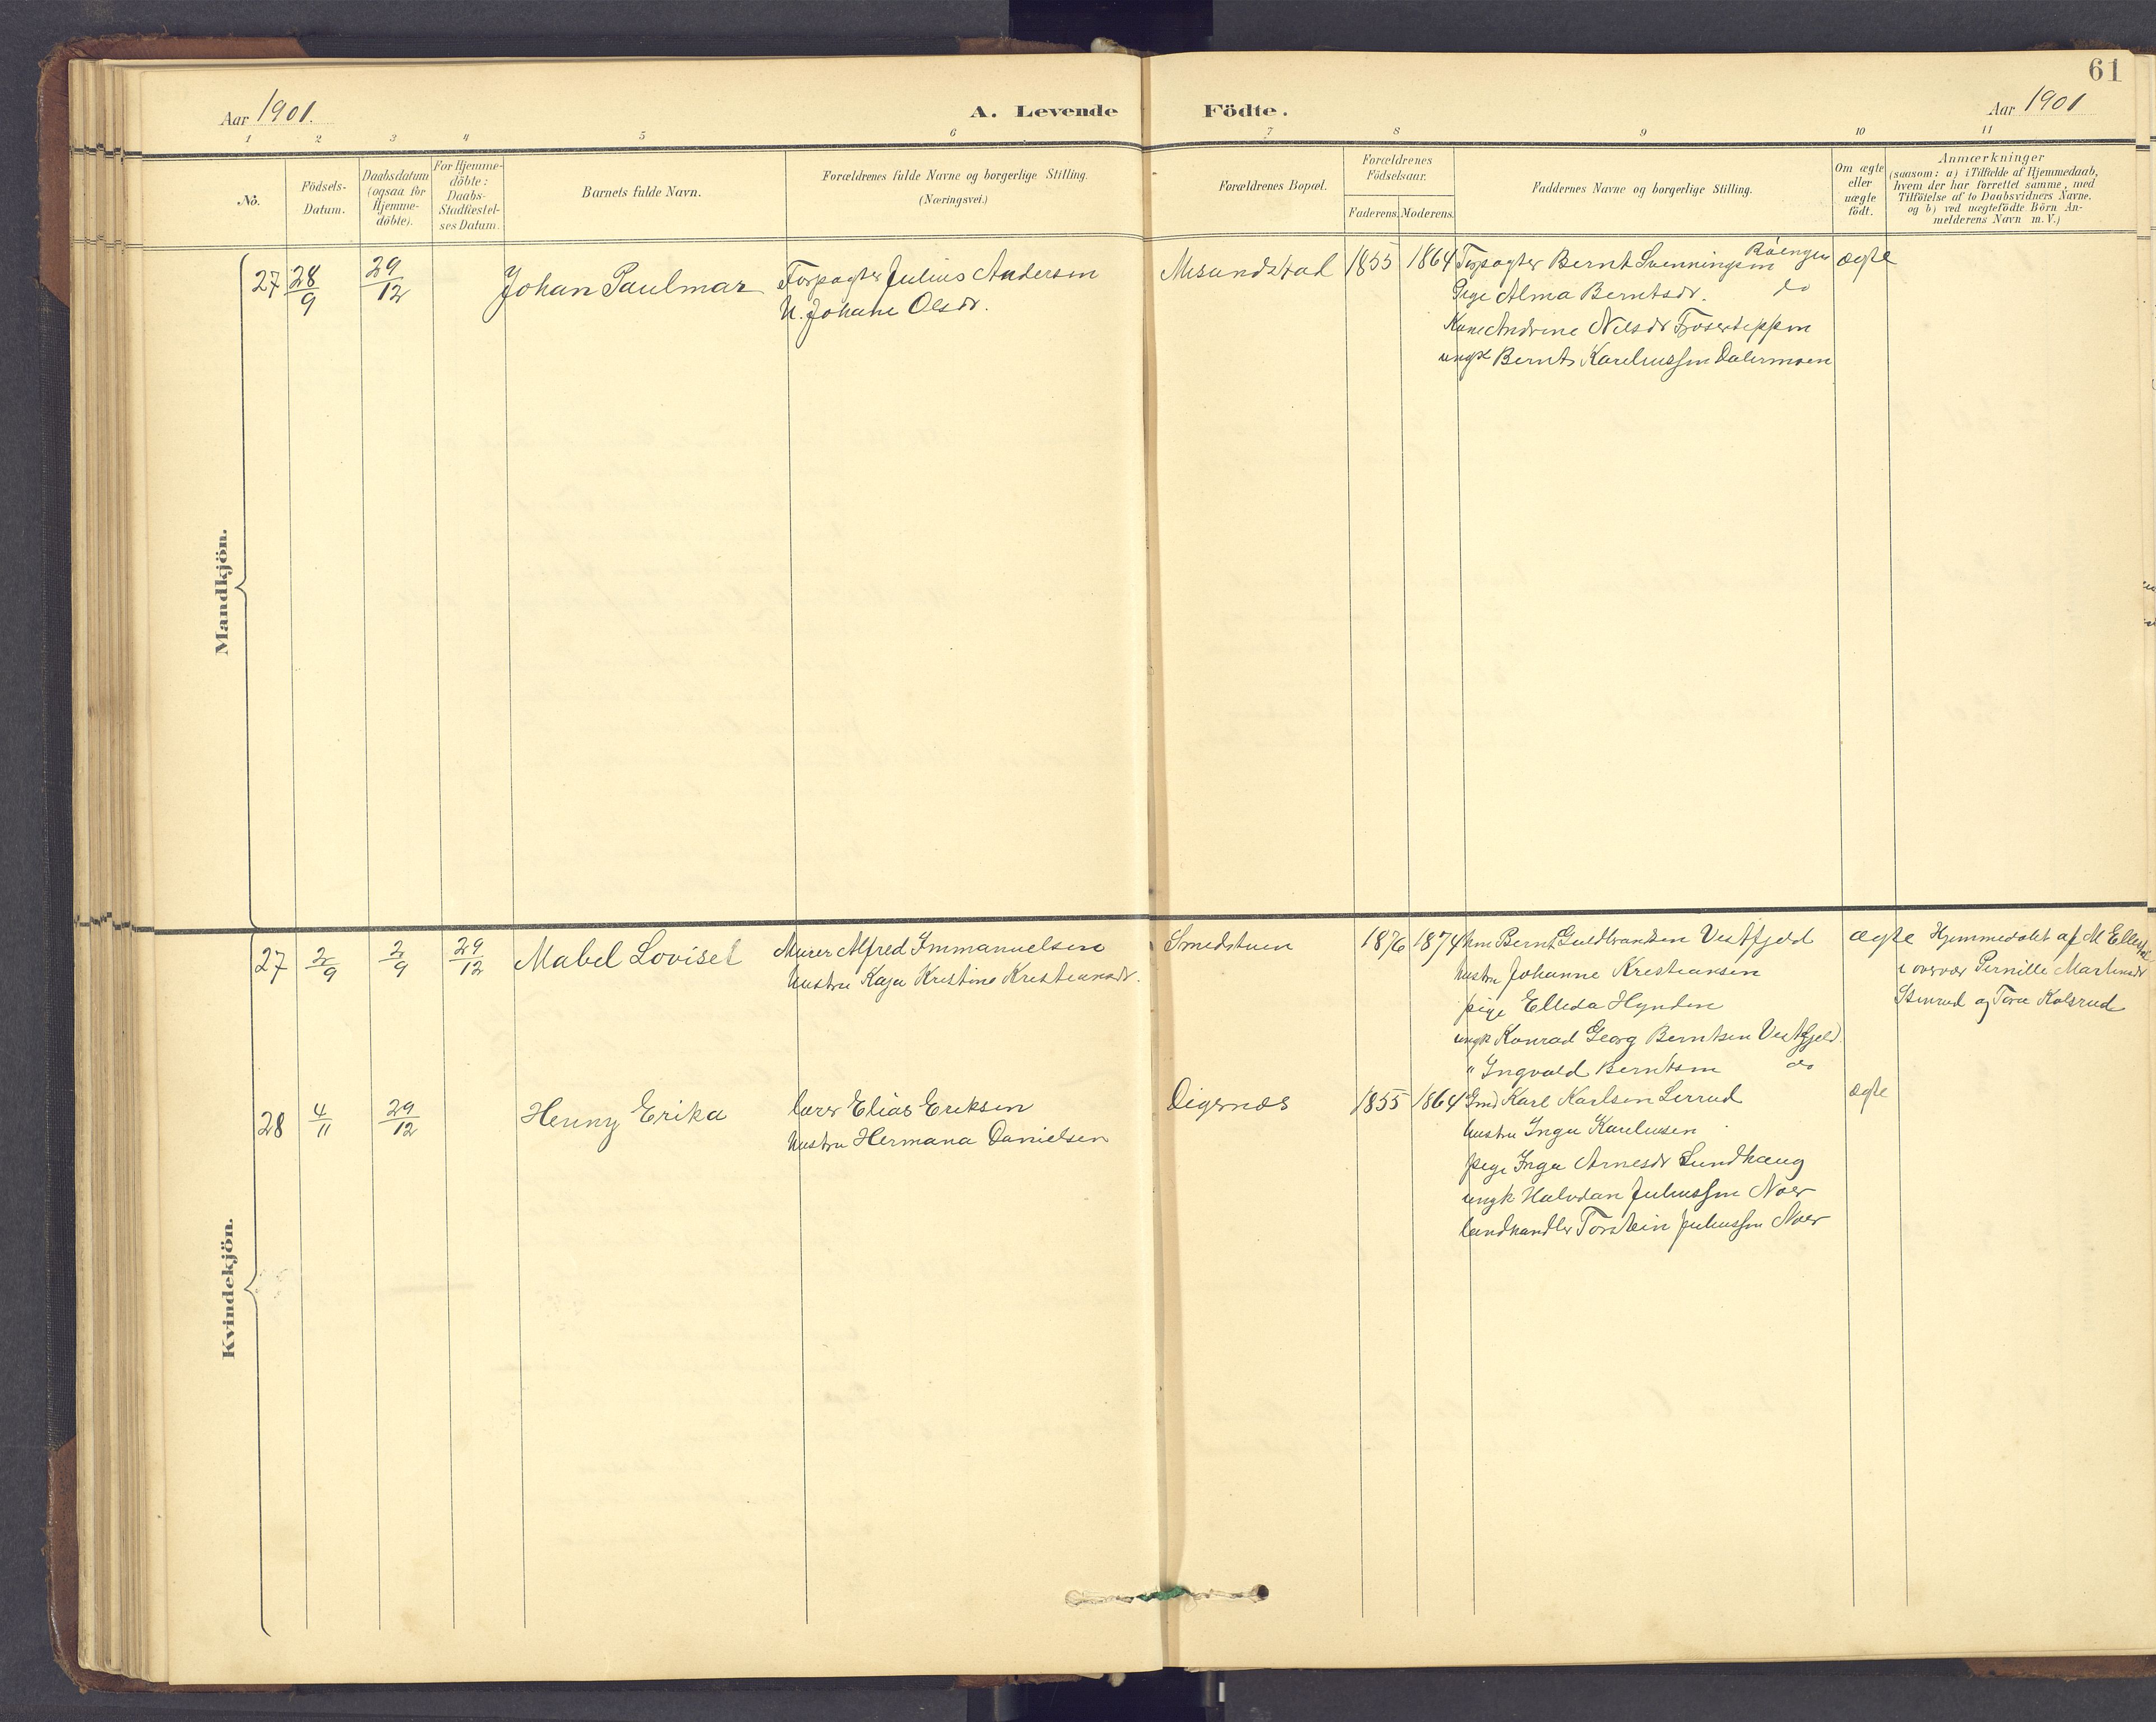 61
Aar 1901.
A. Levende Födte.
Aar 1901
1 2 3 4 5 6 7 8 9 10 11
No.
Födsels-Datum.
Daabsdatum (ogsaa for Hjemme-döbte).
For Hjemme-döbte: Daabs-Stadfæstel-ses Datum.
Barnets fulde Navn.
Forældrenes fulde Navne og borgerlige Stilling.
(Næringsvei.)
Forældrenes Bopæl.
Forældrenes Födselsaar.
Faderens. Moderens.
Faddernes Navne og borgerlige Stilling.
Om ægte eller uægte födt.
Anmærkninger
(saasom: a) i Tilfælde af Hjemmedaab,
hvem der har forrettet samme, med
Tilföielse af to Daabsvidners Navne.
og b) ved uægtefödte Börn An-
melderens Navn m. V.)
Mandkjön.
27 28/9 29/12 Johan Paulmar
Forpagter Julius Andersen
H. Johane Olsdr.
1855 1864
Forpagter Bernt Svenningsen Råengen
Pige Alma Berntsdr. do
Kone Andrine Nilsdr
ungk Bernt Kareliussen Dalermoen
ægte
Kvindekjön.
27 2/9 2/9 29/12 Mabel Lovise
Murer Alfred Immanuelsen
hustru Kaja Kristine Kristiansdr.
Smedstuen
1876 1874
Bernt Guldbrandsen Vestfjeld
hustru Johanne Kristiansen
pige Elleda Hynden
ungk Konrad Georg Berntsen Vestfjeld.
" Ingvald Berntsen do
ægte
Hjemmedøbt af M
i overvær Pernille Martinsdr
Stenrud og Tora Kolsrud
28 4/11 29/12 Henny Erika
lærer Elias Eriksen
hustru Hermana Danielsen
Digernæs
1855 1864
Gmd Karl Karlsen Lerrud
hustru Inga Karelusen
pige Inga Arnesdr Sundhaug
ungk Halvdan Juliussen Noer
landhandler Torstein Juliussen Noer
ægte